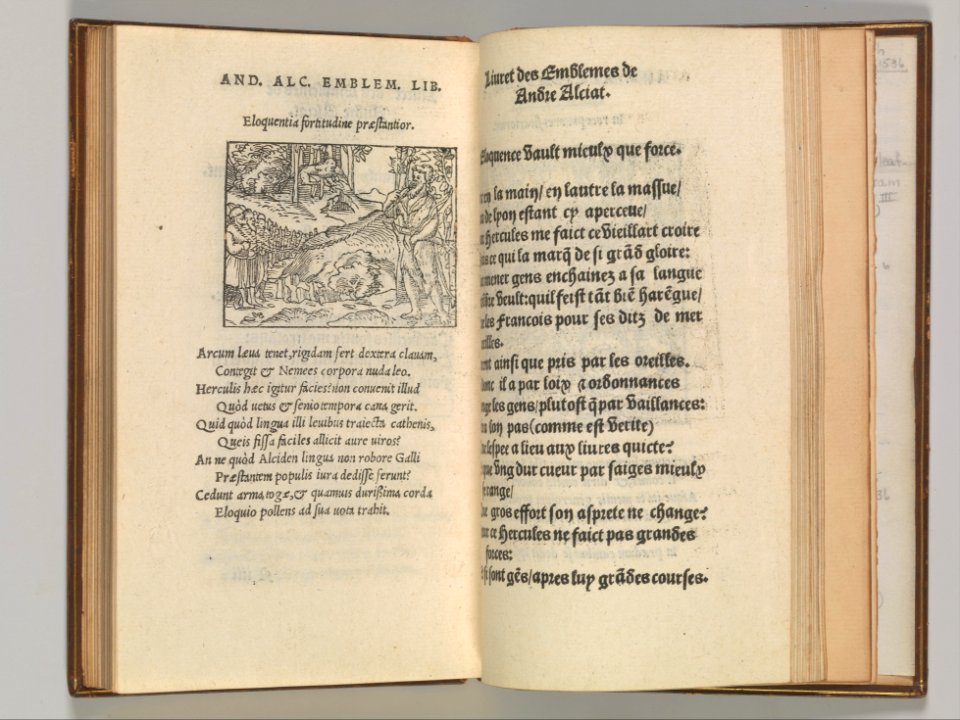 AND. ALC. EMBLEM. LIB.
Eloquentia fortitudine præstantior.
Arcum læua tenet, rigidam fert dextera clauam,
Contegit & Nemees corpora nuda leo.
Herculis hæc igitur facies? non conuenit illud
Quòd uetus & senio tempora cana gerit.
Quid quòd lingua illi leuibus traiecta cathenis,
Queis fissa faciles allicit aure uiros?
An ne quòd Alciden lingua non robore Galli
Præstantem populis iura dedisse ferunt?
Cedunt arma togæ, & quamuis durißima corda
Eloquio pollens ad sua uota trahit.
Liuret des Emblemes de
Andre Alciat.
Eloquence vault mieulx que force.
en la main/ en lautre la massue/
de lyon estant cy aperceue/
Hercules me faict ce vieillart croire
ce qui la marq̃ de si grãd gloire:
mener gens enchainez a sa langue
veult: quil feist tãt biẽ harẽgue/
les Francois pour ses ditz de mer
ueilles.
ainsi que pris par les oreilles.
il a par loix & ordonnances
les gens/ plutost q̃ par vaillances:
son pas (comme est verite)
lespee a lieu aux liures quicte?
vng dur cueur par saiges mieulx
range/
gros effort son asprete ne change?
ce Hercules ne faict pas grandes
forces:
sont gẽs/ apres luy grãdes courses.
1536
III